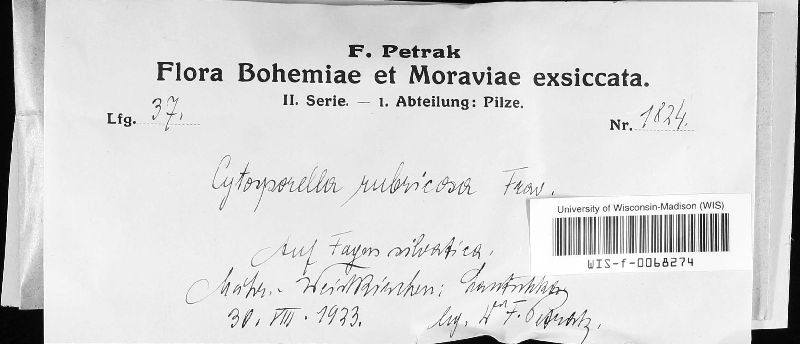 F. Petrak
Flora Bohemiae et Moraviae exsiccata.
II. Serie. — 1. Abteilung: Pilze.
Lfg. 37.
Nr. 1824.
Cytosporella rubricosa Trav.
University of Wisconsin-Madison (WIS)
WIS-f-0068274
Auf Fagus silvatica.
Mähr.-Weisskirchen:
30. VIII. 1923. leg. F. Petrak.